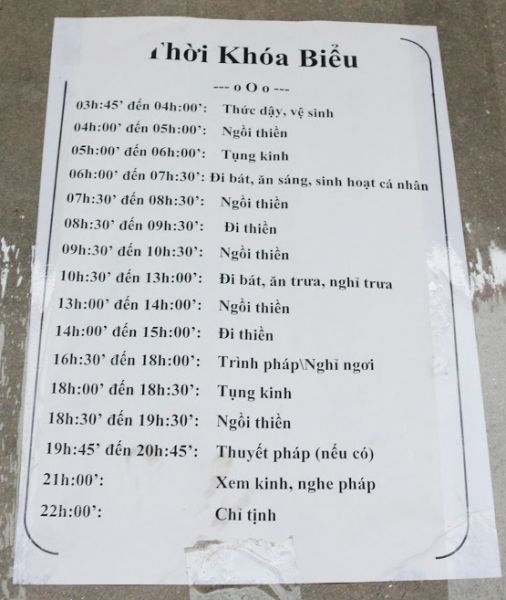 Thời Khóa Biểu
--- o O o ---
03h:45' đến 04h:00': Thức dậy, vệ sinh
04h:00' đến 05h:00': Ngồi thiền
05h:00' đến 06h:00': Tụng kinh
06h:00' đến 07h:30': Đi bát, ăn sáng, sinh hoạt cá nhân
07h:30' đến 08h:30': Ngồi thiền
08h:30' đến 09h:30': Đi thiền
09h:30' đến 10h:30': Ngồi thiền
10h:30' đến 13h:00': Đi bát, ăn trưa, nghỉ trưa
13h:00' đến 14h:00': Ngồi thiền
14h:00' đến 15h:00': Đi thiền
16h:30' đến 18h:00': Trình pháp\Nghỉ ngơi
18h:00' đến 18h:30': Tụng kinh
18h:30' đến 19h:30': Ngồi thiền
19h:45' đến 20h:45': Thuyết pháp (nếu có)
21h:00': Xem kinh, nghe pháp
22h:00': Chỉ tịnh